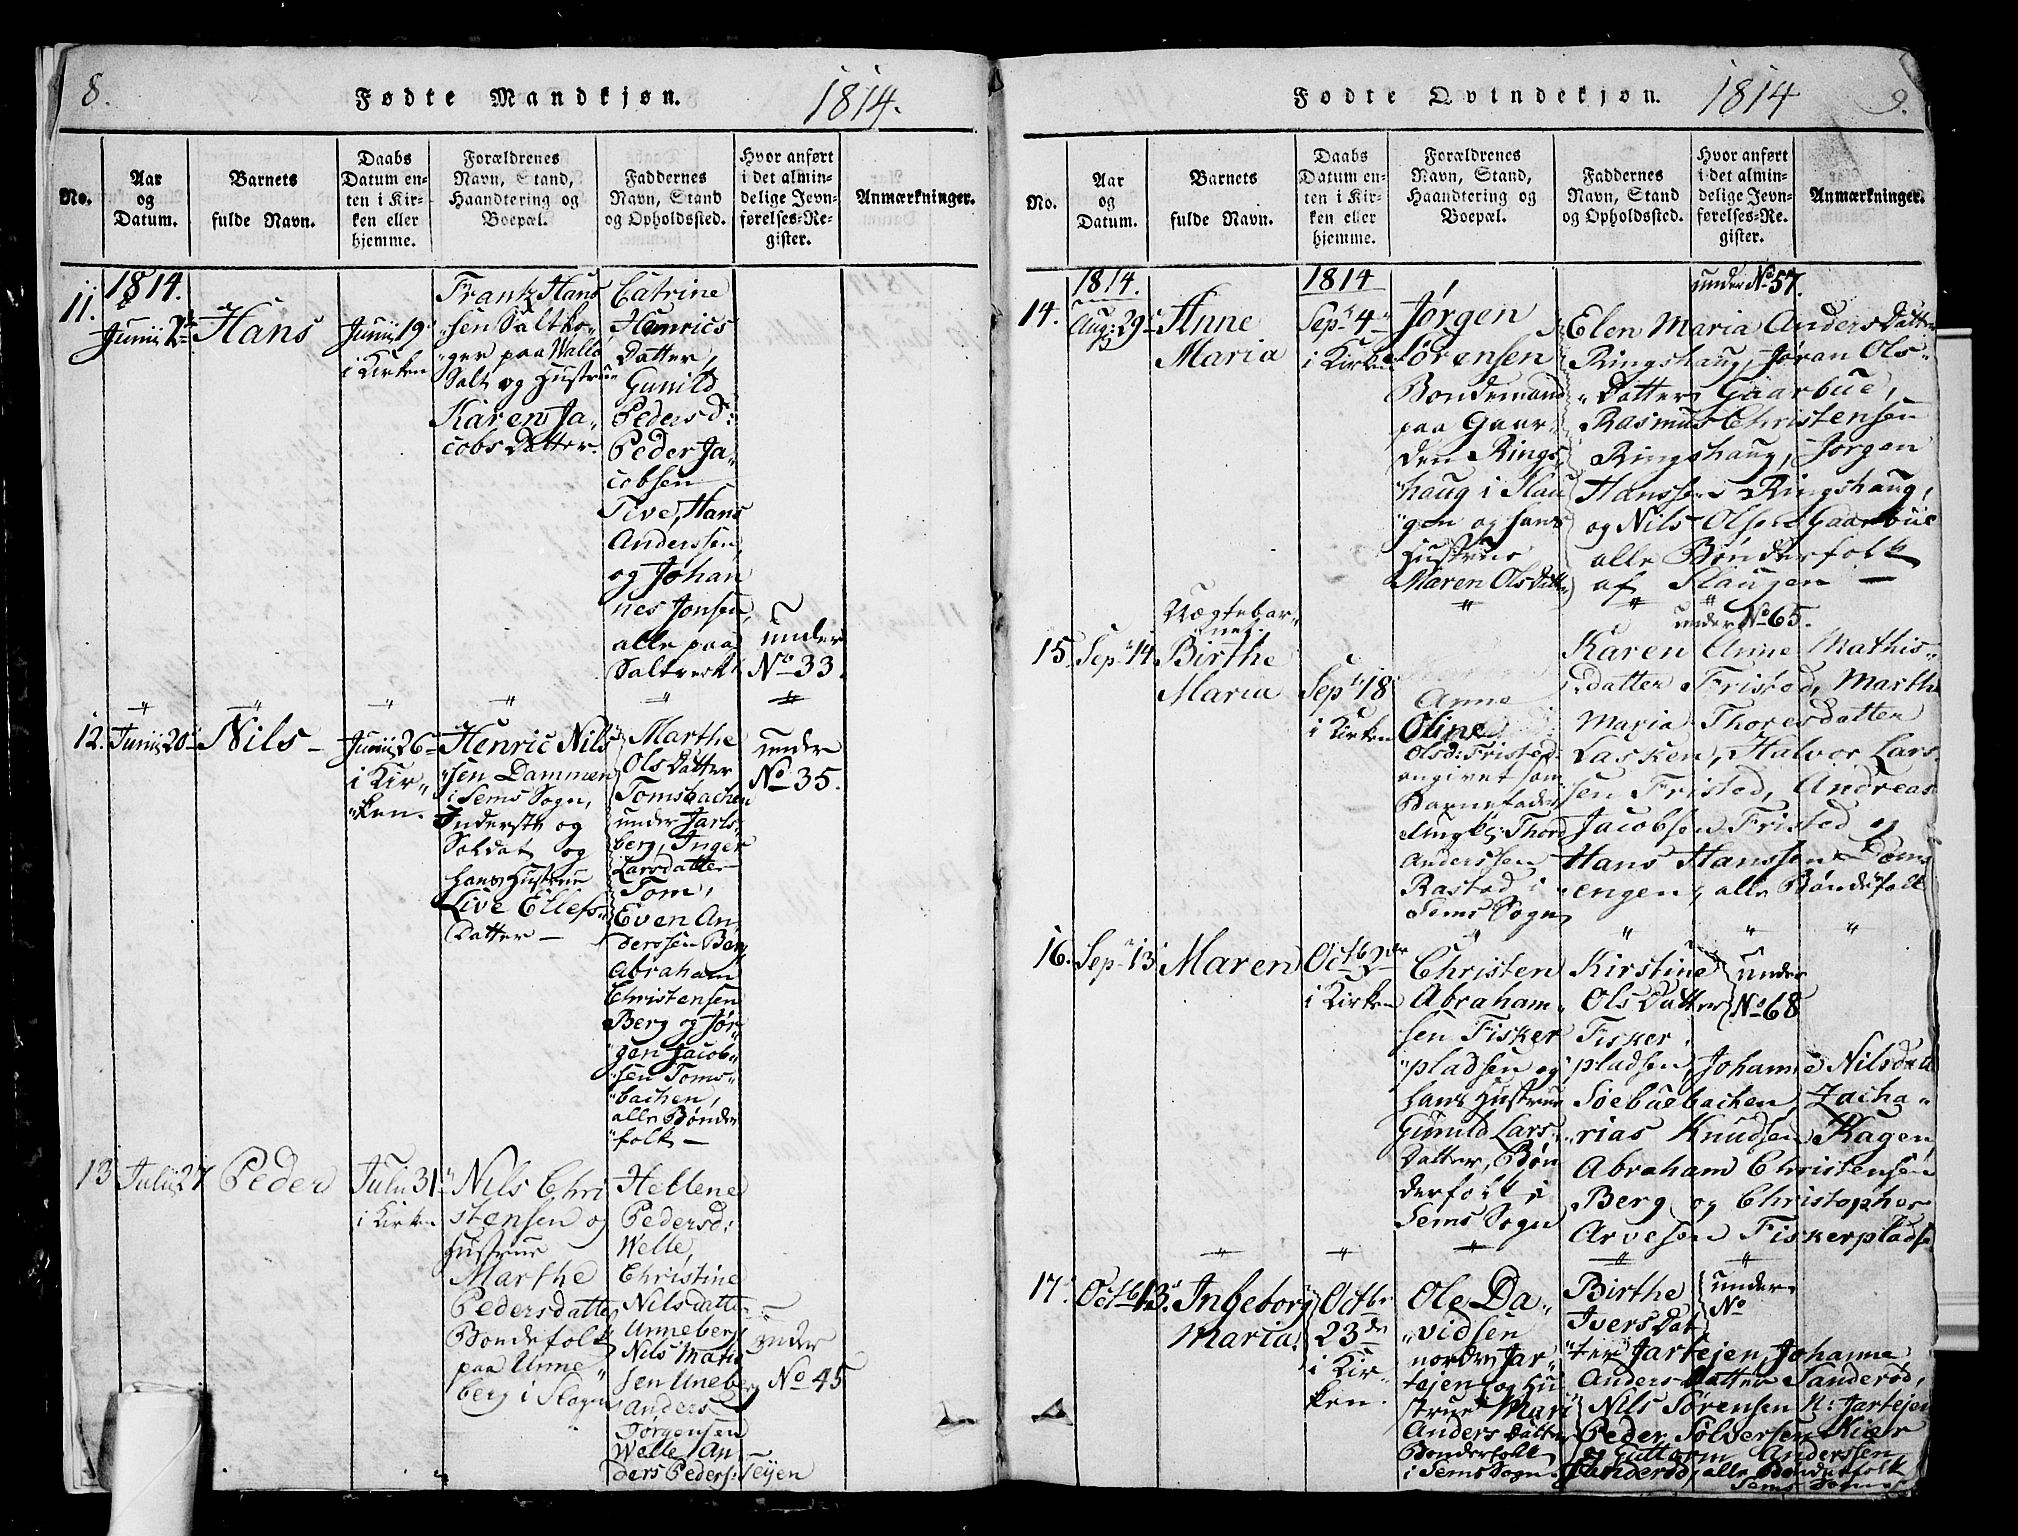 8.
Fødte Mandkjøn.
1814.
No.
Aar
og
Datum.
Barnets
fulde Navn.
Daabs
Datum en-
ten i Kir-
ken eller
hjemme.
Forældrenes
Navn, Stand,
Haandtering og
Boepæl.
Faddernes
Navn, Stand
og Opholdssted.
Hvor anført
i det almin-
delige Jevn-
førelses-Re-
gister.
Anmærkninger.
11.
1814.
Junij 2de
Hans
Junij 19
i Kirken
Frantz Hans
sen Saltko-
ger paa Wallø
Salt og Hustrue
Karen Ja-
cobs Datter.
Catrine
Henrics
Datter,
Gunild
Pedersd:
Peder Ja-
cobsen
Tive, Hans
Anderssen
og Johan
nes Jonsen,
alle paa
Saltverk
under
No 33.
12.
Junij 20
Nils
Junij 26
i Kir-
ken.
Henric Nils
sen Dammen
i Sems Sogn,
Inderste og
Soldat og
hans Hustrue
Live Ellefs-
Datter
Marthe
Ols Datter
Tomsbachen
under Jarls-
berg, Inger
Larsdatter
Tom,
Even An-
derssen Berg
Abraham
Christensen
Berg og Jør-
gen Jacob-
sen Toms-
bachen,
alle Bønder
folk
under
No 35.
13
Julii 27
Peder
Julii 31
i Kirken
Nils Chri
stensen og
Hustrue
Marthe
Pedersdatter
Bondefolk
paa Unne
berg i Slagn
Hellene
Pedersd:
Welle,
Christine
Nilsdatter
Unneberg
Nils Mathi
sen Uneberg
Anders
Jørgensen
Welle, An-
ders Peders: Teijen
under
No 45
Fødte Qvindekjøn.
1814
9.
No.
Aar
og
Datum.
Barnets
fulde Navn.
Daabs
Datum en-
ten i Kir-
ken eller
hjemme.
Forældrenes
Navn, Stand,
Haandtering og
Boepæl.
Faddernes
Navn, Stand
og Opholdssted.
Hvor anført
i det almin-
delige Jevn-
førelses-Re-
gister.
Anmærkninger.
14.
1814.
Aug: 29
Anne
Maria
1814
Sept 4
i Kirken
Jørgen
Sørensen
Bondemand
paa Gaar-
den Rings-
haug i Slau
gen og hans
Hustrue
Maren Ols Datter
under No 57.
Elen Maria Anders Datter
Ringshaug, Jøran Ols-
Datter Gaarbue,
Rasmus Christensen
Ringshaug, Jørgen
Hanssen Ringshaug,
og Nils Olsen Gaarbue
alle Bønderfolk
af Slaugen
15.
Sept 14
Uægtebar-
net
Birthe
Maria
Sept 18
i Kirken
Anne
Oline
Olsd: Fristed
angivet som
Barnefader
Ungkl: Thord
Anderssen
Rastad i
Sems Sogn
under No 65.
Karen Anne Mathis-
datter Fristed, Marthe
Maria Thoresdatter
Lasken, Halvor Lars-
sen Fristed, Andreas
Jacobsen Fristed og
Hans Hanssen Døms
engen, alle Bøndefolk
16.
Sept 13
Maren
Octb 2de
i Kirken
Christen
Abraham-
sen Fisker
pladsen og
hans Hustrue
Gunild Lars-
Datter, Bøn
derfolk i
Sems Sogn
Kirstine
Ols Datter
Fisker
pladsen, Johanne Nilsdatt
Søebuebachen, Zacha-
rias Knudsen Kagen,
Abraham Christensen
Berg og Christopher
Arvesen Fiskerpladse
under
No 68
17.
Octb 13.
Ingeborg
Maria.
Octbr
23de
i Kir-
ken.
Ole Da-
vidsen
nordre Jar-
tejen og Hu
strue Mari
Anders Datter
Bonderfolk
i Sems Sogn
Birthe
Ivers Dat
ter Jartejen, Johanne
Anders Datter Sanderød,
Nils Sørensen N: Jartejen
Peder Solversen Kier
og Guttorm Anderssen
Sanderød, alle Bønderfolk
Sems Sogn
under
No